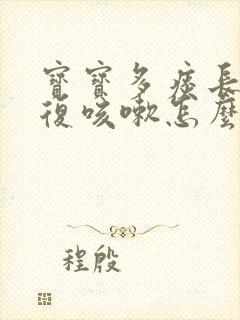 寶寶多痰長
復咳嗽怎麼
程殷